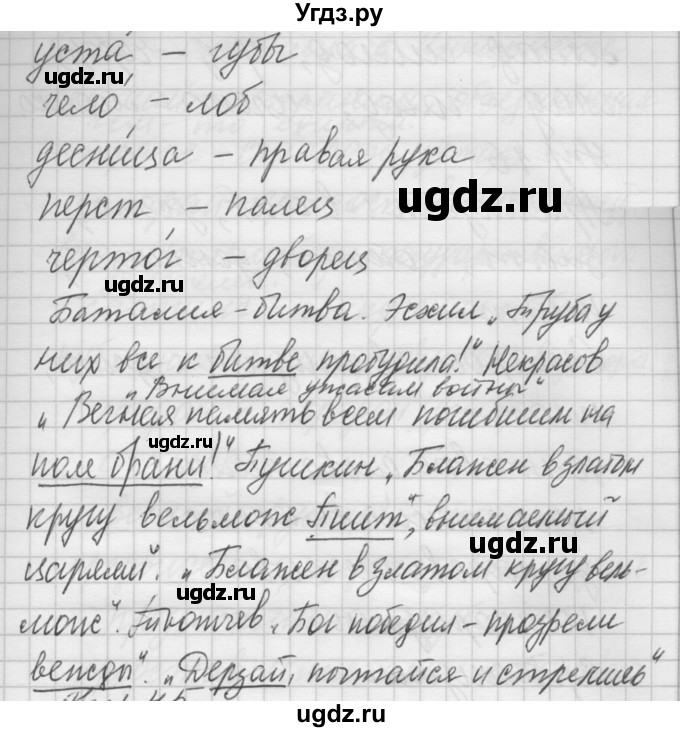 Угдз.ру
уста́ – губы
ugdz.ru
чело́ – лоб
десни́ца – правая рука
перст – палец
ugdz.ru
черто́г – дворец
ugdz.ru
Баталия – битва. Эсхил „Труба у
них все к битве пробудила!" Некрасов
„Внимая ужасам войны"
„Вечная память всем погибшим на
ugdz.ru
поле брани!" Пушкин „Блажен в златом
кругу вельмож Пиит", внимаемый
ugdz.ru
царями". „Блажен в златом кругу вель-
ugdz.ru
мож". Тютчев „Бог победил – прозрели
вежды". „Дерзай, пытайся и стремись"
ugdz.ru